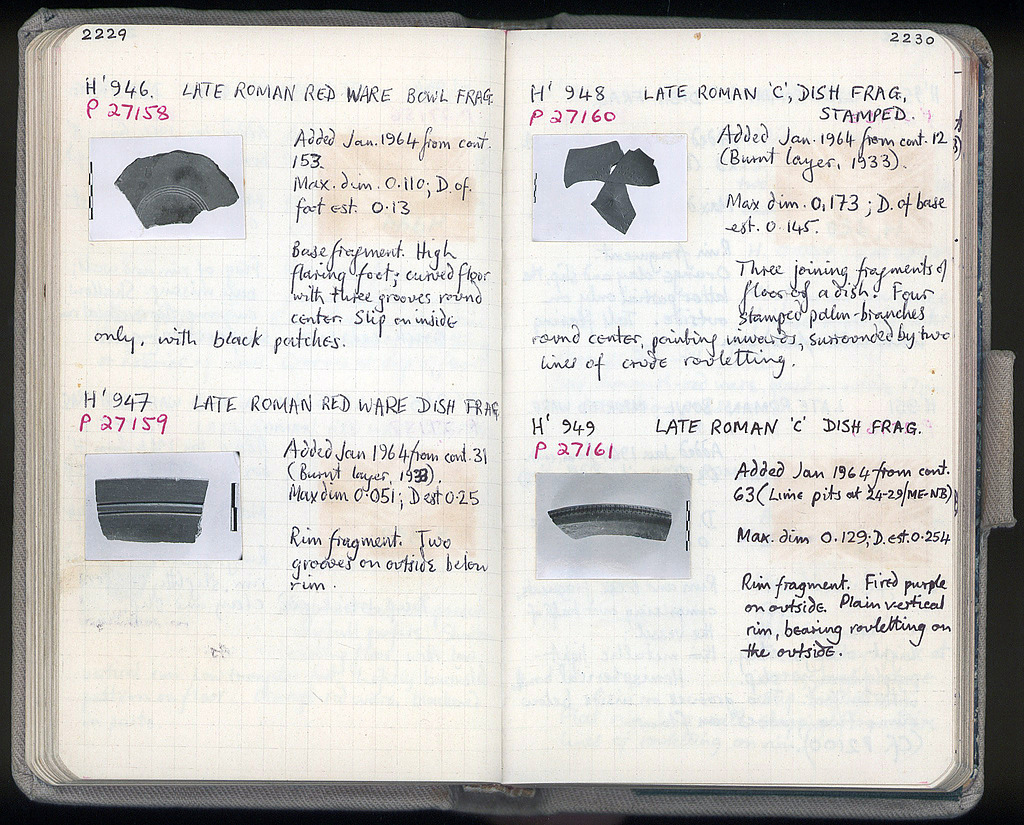 2229
H' 946. LATE ROMAN RED WARE BOWL FRAG.
P 27158
Added Jan. 1964 from cont.
153.
Max. dim. 0.110; D. of
foot est. 0.13
Base fragment. High
flaring foot; curved floor
with three grooves round
center. Slip on inside
only, with black patches.
H' 947 LATE ROMAN RED WARE DISH FRAG.
P 27159
Added Jan 1964 from cont. 31
(Burnt layer, 1933).
Max dim 0.051; D est 0.25
Rim fragment. Two
grooves on outside below
rim.
2230
H' 948 LATE ROMAN 'C', DISH FRAG,
STAMPED.
P 27160
Added Jan. 1964 from cont. 12
(Burnt layer, 1933).
Max dim. 0.173; D. of base
est. 0.145.
Three joining fragments of
floor of a dish. Four
stamped palm-branches
round center, pointing inwards, surrounded by two
lines of crude rouletting.
H' 949 LATE ROMAN 'C' DISH FRAG.
P 27161
Added Jan 1964 from cont.
63 (Lime pits at 24-29/ME-NB)
Max. dim 0.129; D. est. 0.254
Rim fragment. Fired purple
on outside. Plain vertical
rim, bearing rouletting on
the outside.